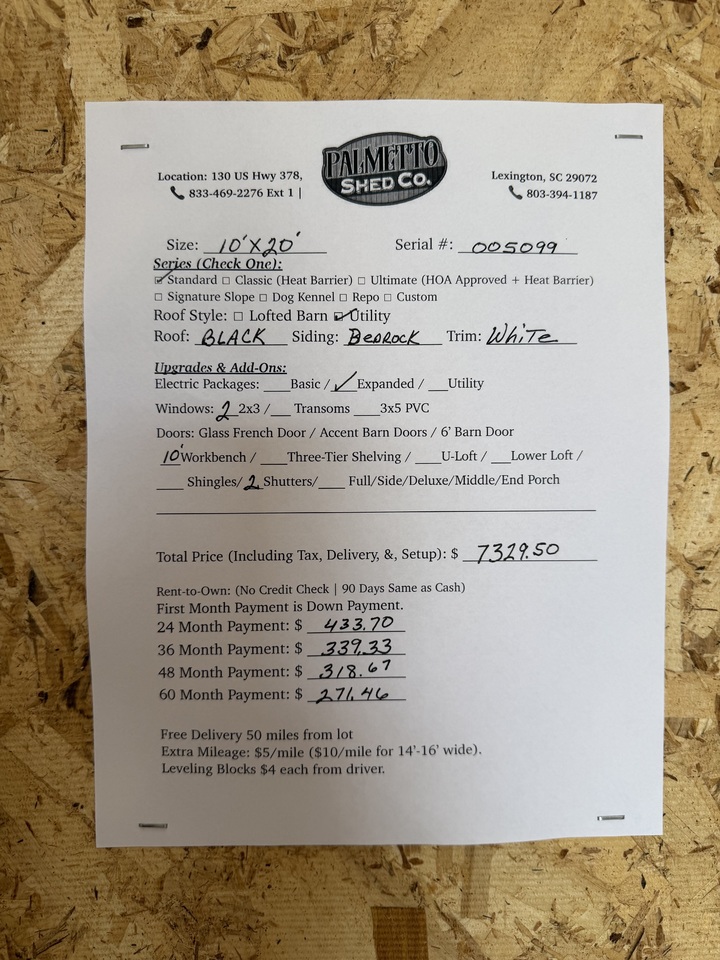 PALMETTO
SHED CO.
Location: 130 US Hwy 378,
833-469-2276 Ext 1 |
Lexington, SC 29072
803-394-1187
Size: 10'X20' Serial #: 005099
Series (Check One):
☑ Standard ☐ Classic (Heat Barrier) ☐ Ultimate (HOA Approved + Heat Barrier)
☐ Signature Slope ☐ Dog Kennel ☐ Repo ☐ Custom
Roof Style: ☐ Lofted Barn ☑ Utility
Roof: BLACK Siding: BEDROCK Trim: WHiTE
Upgrades & Add-Ons:
Electric Packages: ___Basic / ✓ Expanded / ___Utility
Windows: 2 2x3 /___ Transoms ____3x5 PVC
Doors: Glass French Door / Accent Barn Doors / 6' Barn Door
10' Workbench / ____Three-Tier Shelving / ____U-Loft / ___Lower Loft /
____ Shingles/ 2 Shutters/____ Full/Side/Deluxe/Middle/End Porch
Total Price (Including Tax, Delivery, &, Setup): $ 7329.50
Rent-to-Own: (No Credit Check | 90 Days Same as Cash)
First Month Payment is Down Payment.
24 Month Payment: $ 433.70
36 Month Payment: $ 339.33
48 Month Payment: $ 318.67
60 Month Payment: $ 271.46
Free Delivery 50 miles from lot
Extra Mileage: $5/mile ($10/mile for 14'-16' wide).
Leveling Blocks $4 each from driver.